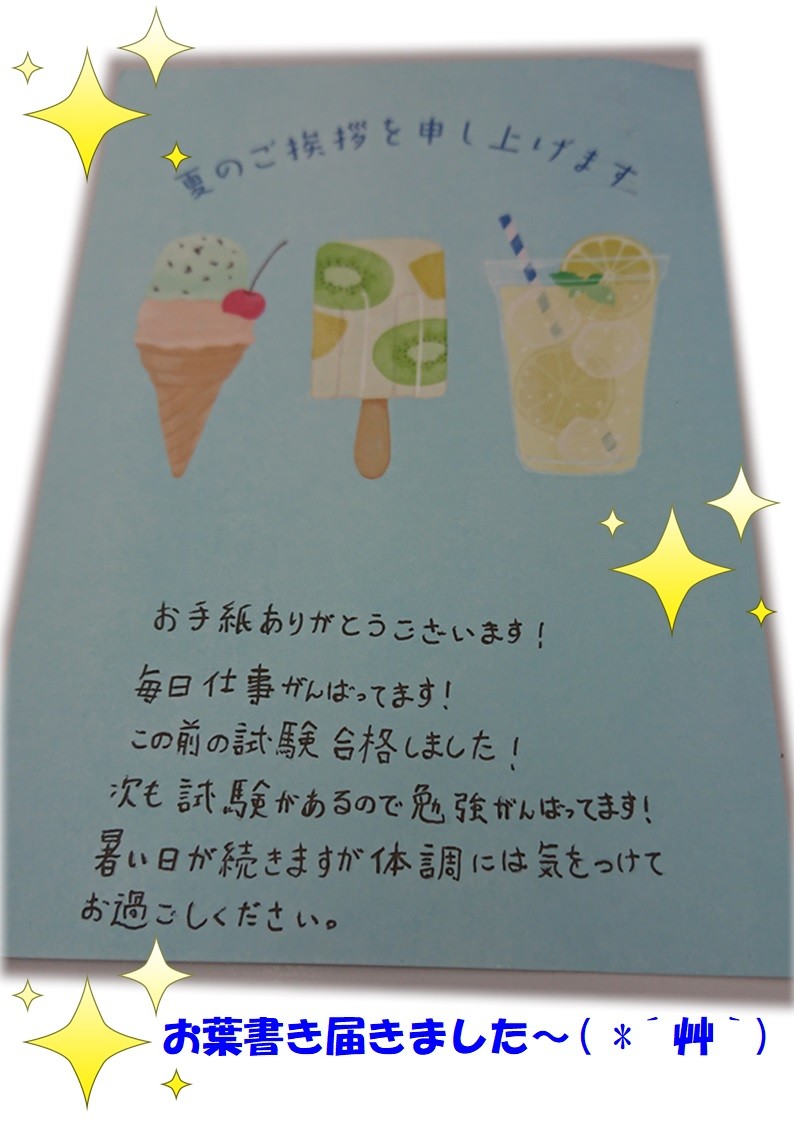 夏のご挨拶を申し上げます
お手紙ありがとうございます!
毎日仕事がんばってます!
この前の試験合格しました!
次も試験があるので勉強がんばってます!
暑い日が続きますが体調には気をつけて
お過ごしください。
お葉書き届きました～(*´艸｀)